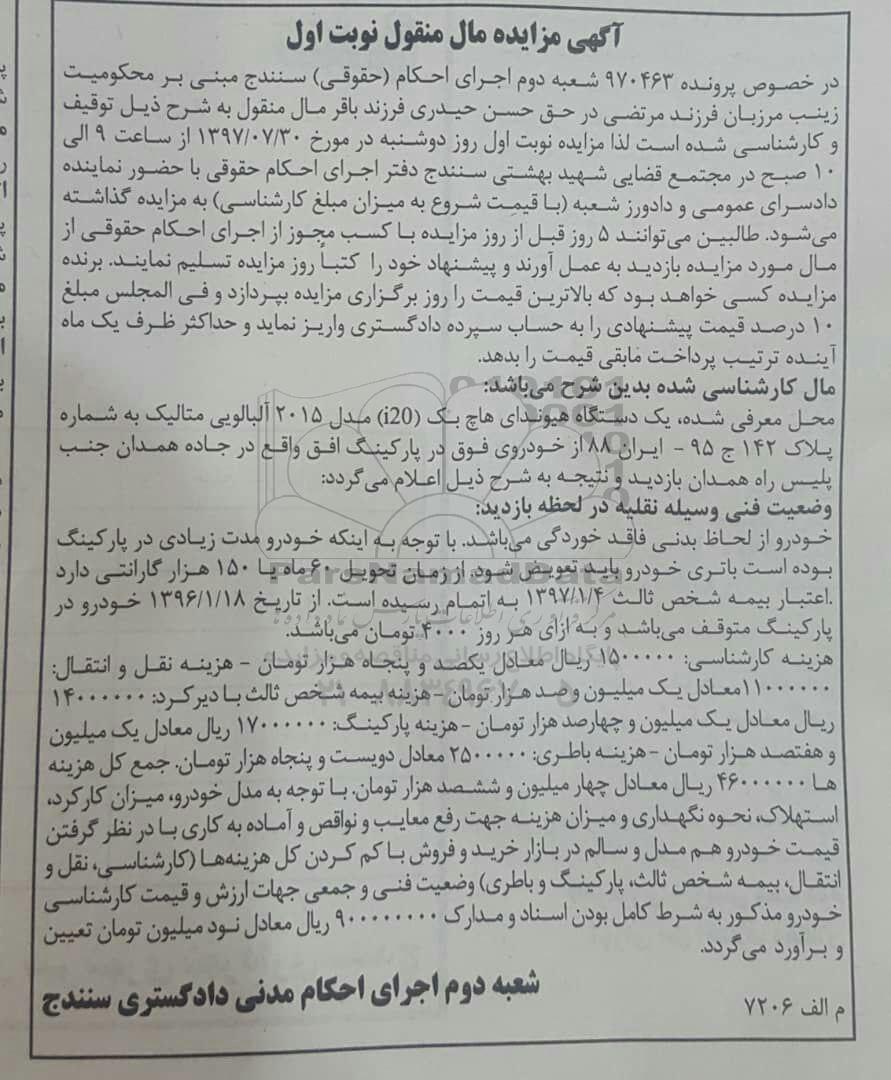 آگهی مزایده مال منقول نوبت اول
در خصوص پرونده ۹۷۰۴۶۳ شعبه دوم اجرای احکام (حقوقی) سنندج مبنی بر محکومیت
زینب مرزبان فرزند مرتضی در حق حسن حیدری فرزند باقر مال منقول به شرح ذیل توقیف
و کارشناسی شده است لذا مزایده نوبت اول روز دوشنبه در مورخ ۱۳۹۷/۰۷/۳۰ از ساعت ۹ الی
۱۰ صبح در مجتمع قضایی شهید بهشتی سنندج دفتر اجرای احکام حقوقی با حضور نماینده
دادسرای عمومی و دادورز شعبه (با قیمت شروع به میزان مبلغ کارشناسی) به مزایده گذاشته
می‌شود. طالبین می‌توانند ۵ روز قبل از روز مزایده با کسب مجوز از اجرای احکام حقوقی از
مال مورد مزایده بازدید به عمل آورند و پیشنهاد خود را کتباً روز مزایده تسلیم نمایند. برنده
مزایده کسی خواهد بود که بالاترین قیمت را روز برگزاری مزایده بپردازد و فی المجلس مبلغ
۱۰ درصد قیمت پیشنهادی را به حساب سپرده دادگستری واریز نماید و حداکثر ظرف یک ماه
آینده ترتیب پرداخت مابقی قیمت را بدهد.
مال کارشناسی شده بدین شرح می‌باشد:
محل معرفی شده، یک دستگاه هیوندای هاچ بک (i20) مدل ۲۰۱۵ آلبالویی متالیک به شماره
پلاک ۱۴۲ ج ۹۵ - ایران ۸۸ از خودروی فوق در پارکینگ افق واقع در جاده همدان جنب
پلیس راه همدان بازدید و نتیجه به شرح ذیل اعلام می‌گردد:
وضعیت فنی وسیله نقلیه در لحظه بازدید:
خودرو از لحاظ بدنی فاقد خوردگی می‌باشد. با توجه به اینکه خودرو مدت زیادی در پارکینگ
بوده است باتری خودرو باید تعویض شود. از زمان تحویل ۶۰ ماه یا ۱۵۰ هزار گارانتی دارد
.اعتبار بیمه شخص ثالث ۱۳۹۷/۱/۴ به اتمام رسیده است. از تاریخ ۱۳۹۶/۱/۱۸ خودرو در
پارکینگ متوقف می‌باشد و به ازای هر روز ۴۰۰۰ تومان می‌باشد.
هزینه کارشناسی: ۱۵۰۰۰۰۰ ریال معادل یکصد و پنجاه هزار تومان - هزینه نقل و انتقال:
۱۱۰۰۰۰۰۰معادل یک میلیون و صد هزار تومان -هزینه بیمه شخص ثالث با دیرکرد: ۱۴۰۰۰۰۰۰
ریال معادل یک میلیون و چهارصد هزار تومان -هزینه پارکینگ: ۱۷۰۰۰۰۰۰ ریال معادل یک میلیون
و هفتصد هزار تومان -هزینه باطری: ۲۵۰۰۰۰۰ معادل دویست و پنجاه هزار تومان. جمع کل هزینه
ها ۴۶۰۰۰۰۰۰ ریال معادل چهار میلیون و ششصد هزار تومان. با توجه به مدل خودرو، میزان کارکرد،
استهلاک، نحوه نگهداری و میزان هزینه جهت رفع معایب و نواقص و آماده به کاری با در نظر گرفتن
قیمت خودرو هم مدل و سالم در بازار خرید و فروش با کم کردن کل هزینه‌ها (کارشناسی، نقل و
انتقال، بیمه شخص ثالث، پارکینگ و باطری) وضعیت فنی و جمعی جهات ارزش و قیمت کارشناسی
خودرو مذکور به شرط کامل بودن اسناد و مدارک ۹۰۰۰۰۰۰۰۰ ریال معادل نود میلیون تومان تعیین
و برآورد می‌گردد.
شعبه دوم اجرای احکام مدنی دادگستری سنندج
م الف ۷۲۰۶